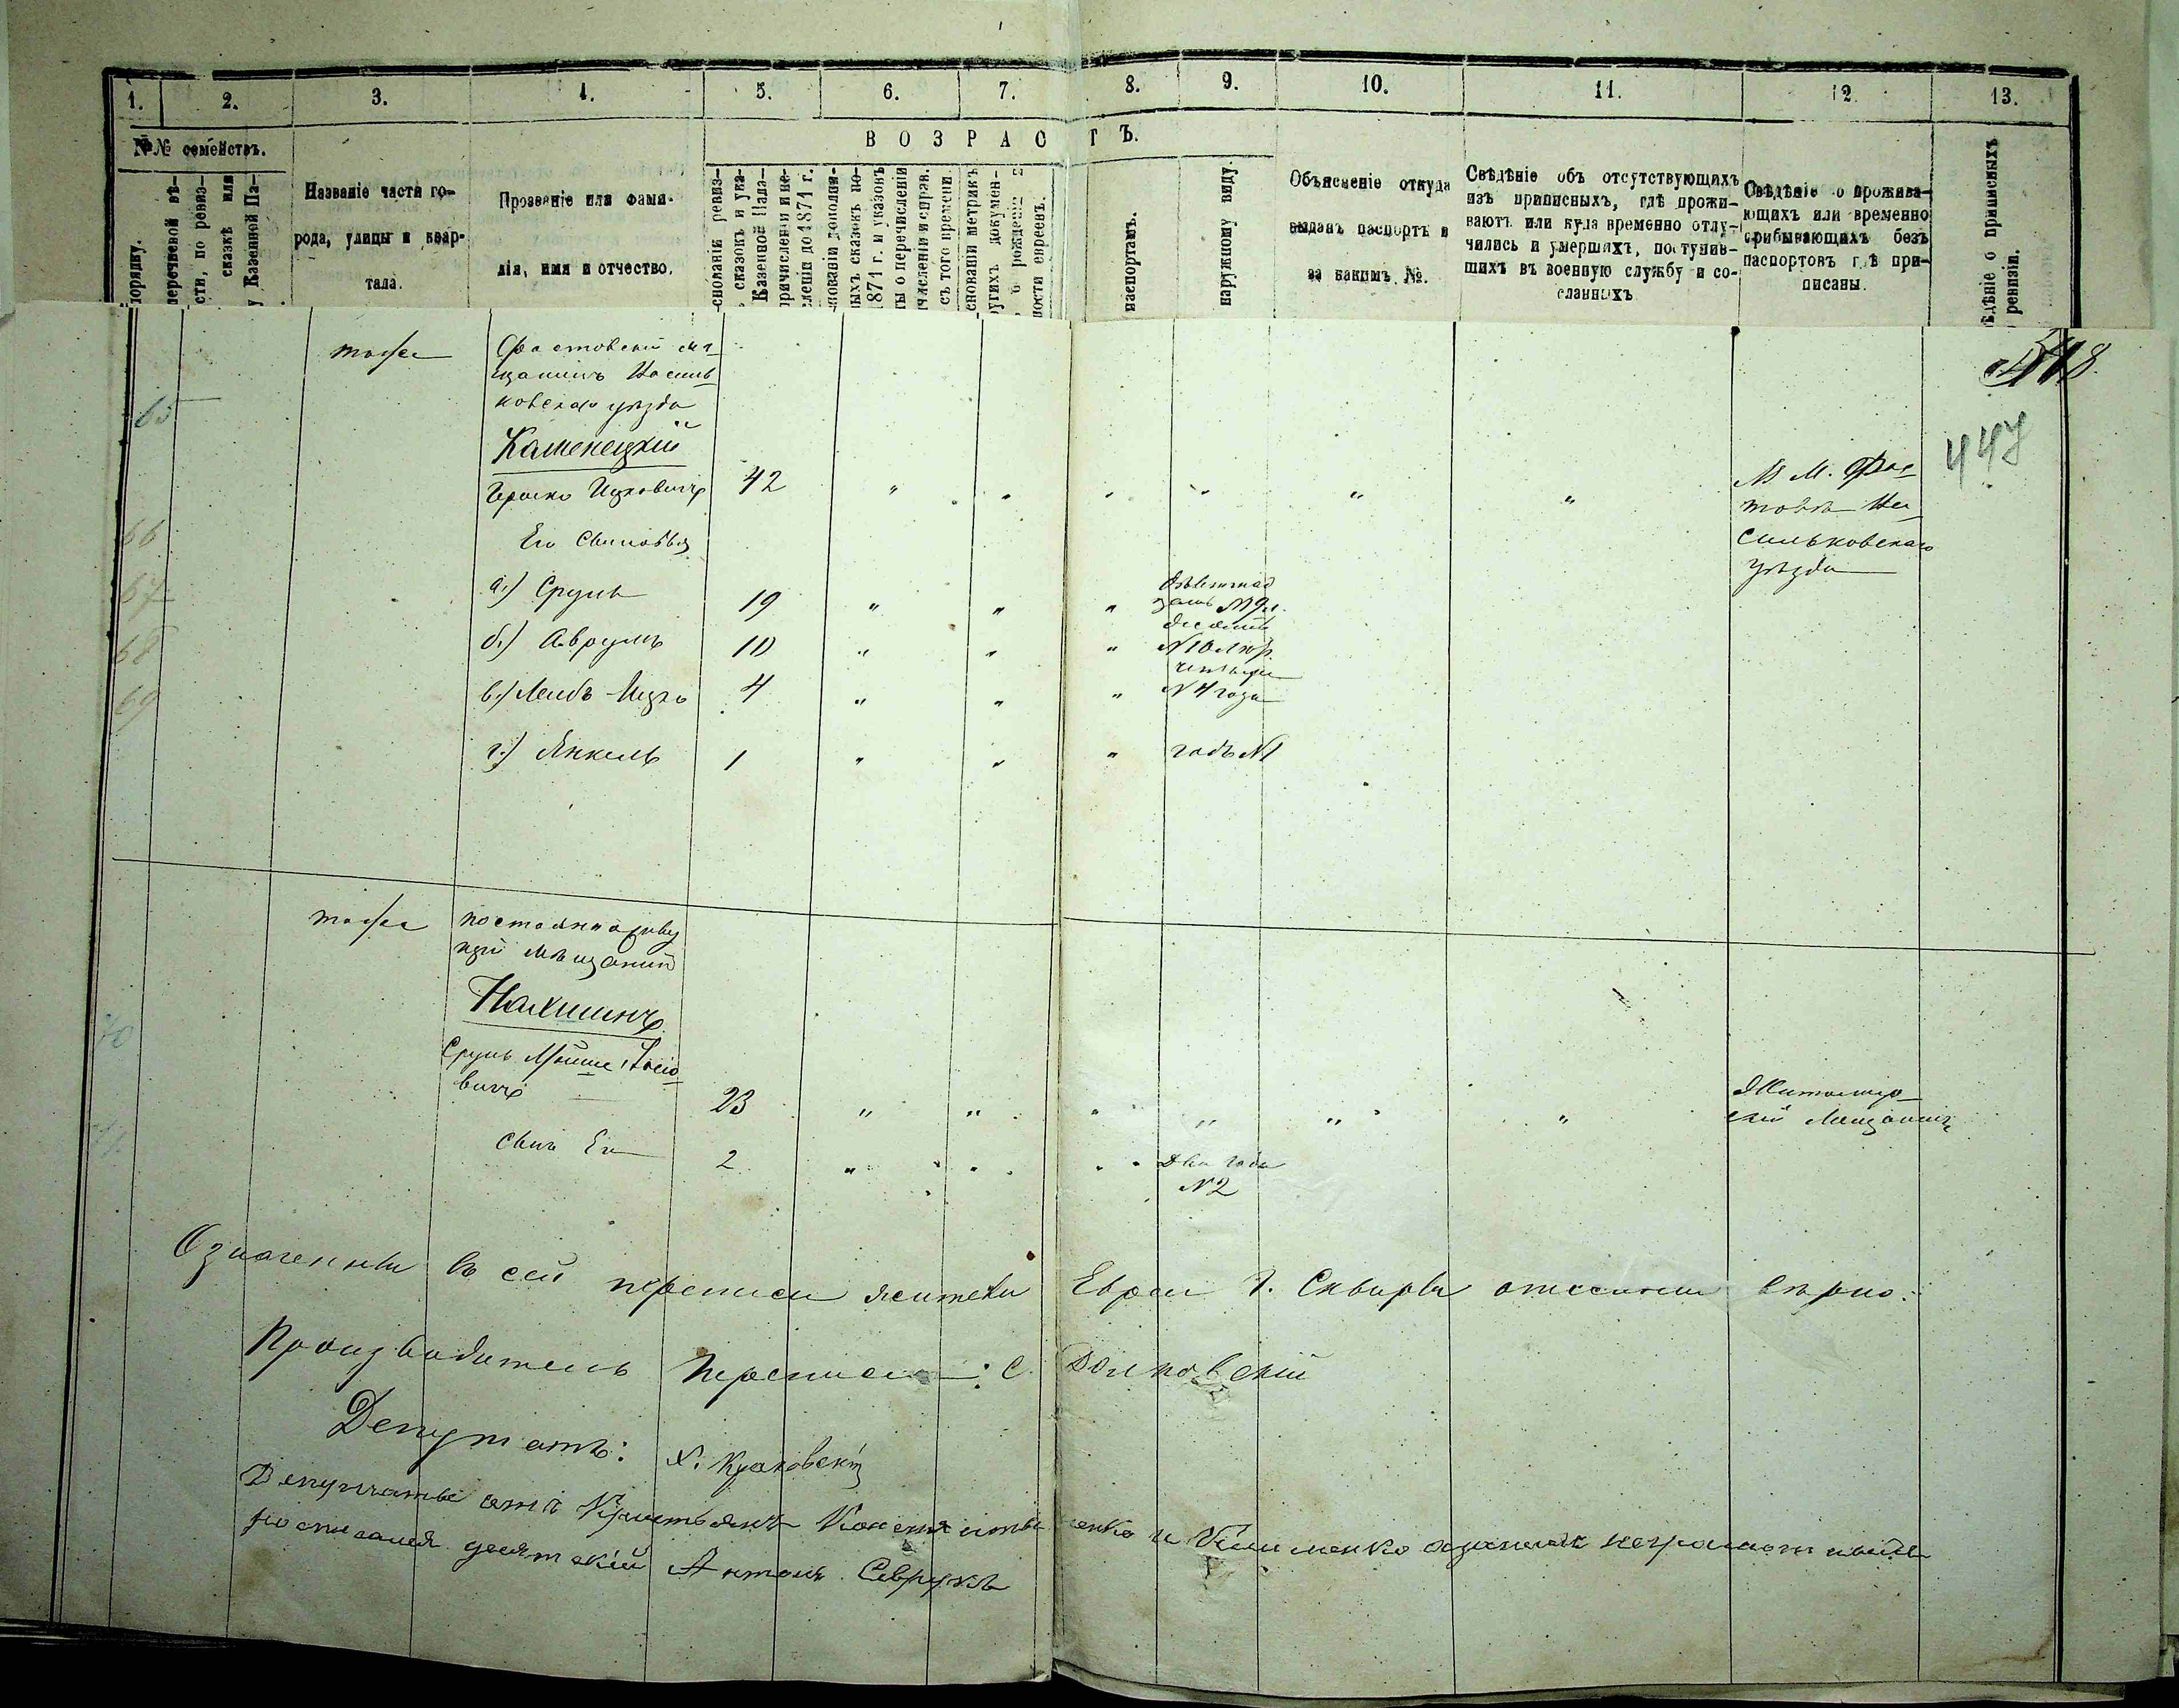 1. 2. 3. 4. 5. 6. 7. 8. 9. 10. 11. 12. 13.
№№ семействъ.
ВОЗРАСТЪ.
порядку.
перечневой вѣ-
сти, по ревиз-
сказкѣ или
у Казенной Па-
Названіе части го-
рода, улицы и квар-
тала.
Прозваніе или фами-
лія, имя и отчество.
снованіи ревиз-
сказокъ и ука-
Казенной Пала-
причисленіи и пе-
сленіи до 1871 г.
нованіи дополни-
ныхъ сказокъ по-
871 г. и указовъ
ты о перечисленіи
численіи и справ.
съ того времени.
снованіи метрикъ
ругихъ докумен-
о рожденіи
ности евреевъ.
паспортамъ.
наружному виду.
Объясненіе откуда
выданъ паспортъ и
за какимъ №.
Свѣдѣніе объ отсутствующихъ
изъ приписныхъ, гдѣ прожи-
ваютъ или куда временно отлу-
чились и умершихъ, поступив-
шихъ въ военную службу и со-
сланныхъ
Свѣдѣніе о прожива-
ющихъ или временно
прибывающихъ безъ
паспортовъ гдѣ при-
писаны.
ѣдѣніе о приписныхъ
ревизіи.
тоже
Фастовскій мѣ-
щанинъ Василь-
ковскаго уѣзда
65
Каменецкій
447
Ицковичъ 42 " " " " " "
В М. Фас-
товѣ Ва-
сильковскаго
уѣзда
66
Его Сыновья
67 а.) Сруль 19 " " " Девятнад
цать №19л.
68 б.) Аврумъ 10 " " " десять
№10 лѣтъ
69 в.) Лейбъ-Ицко 4 " " " четыре
№4 года
г.) Янкель 1 " " " годъ №1
тоже
постоянно живу
щій мѣщанинъ
Нахшинъ
70
Сруль Мойше Іосіо-
вичъ 23 " " " " " "
Житомир-
скій Мещанинъ
71 Сынъ Его 2 " " " Два года
№2
Означенные въ сей переписи жители Евреи г. Сквиры описаны вѣрно.
Производитель переписи: С. Долковскій
Депутатъ: Х. Краковскій
Депутаты отъ Крестьянъ и Клименко
росписался десятскій Антонъ Севрукъ